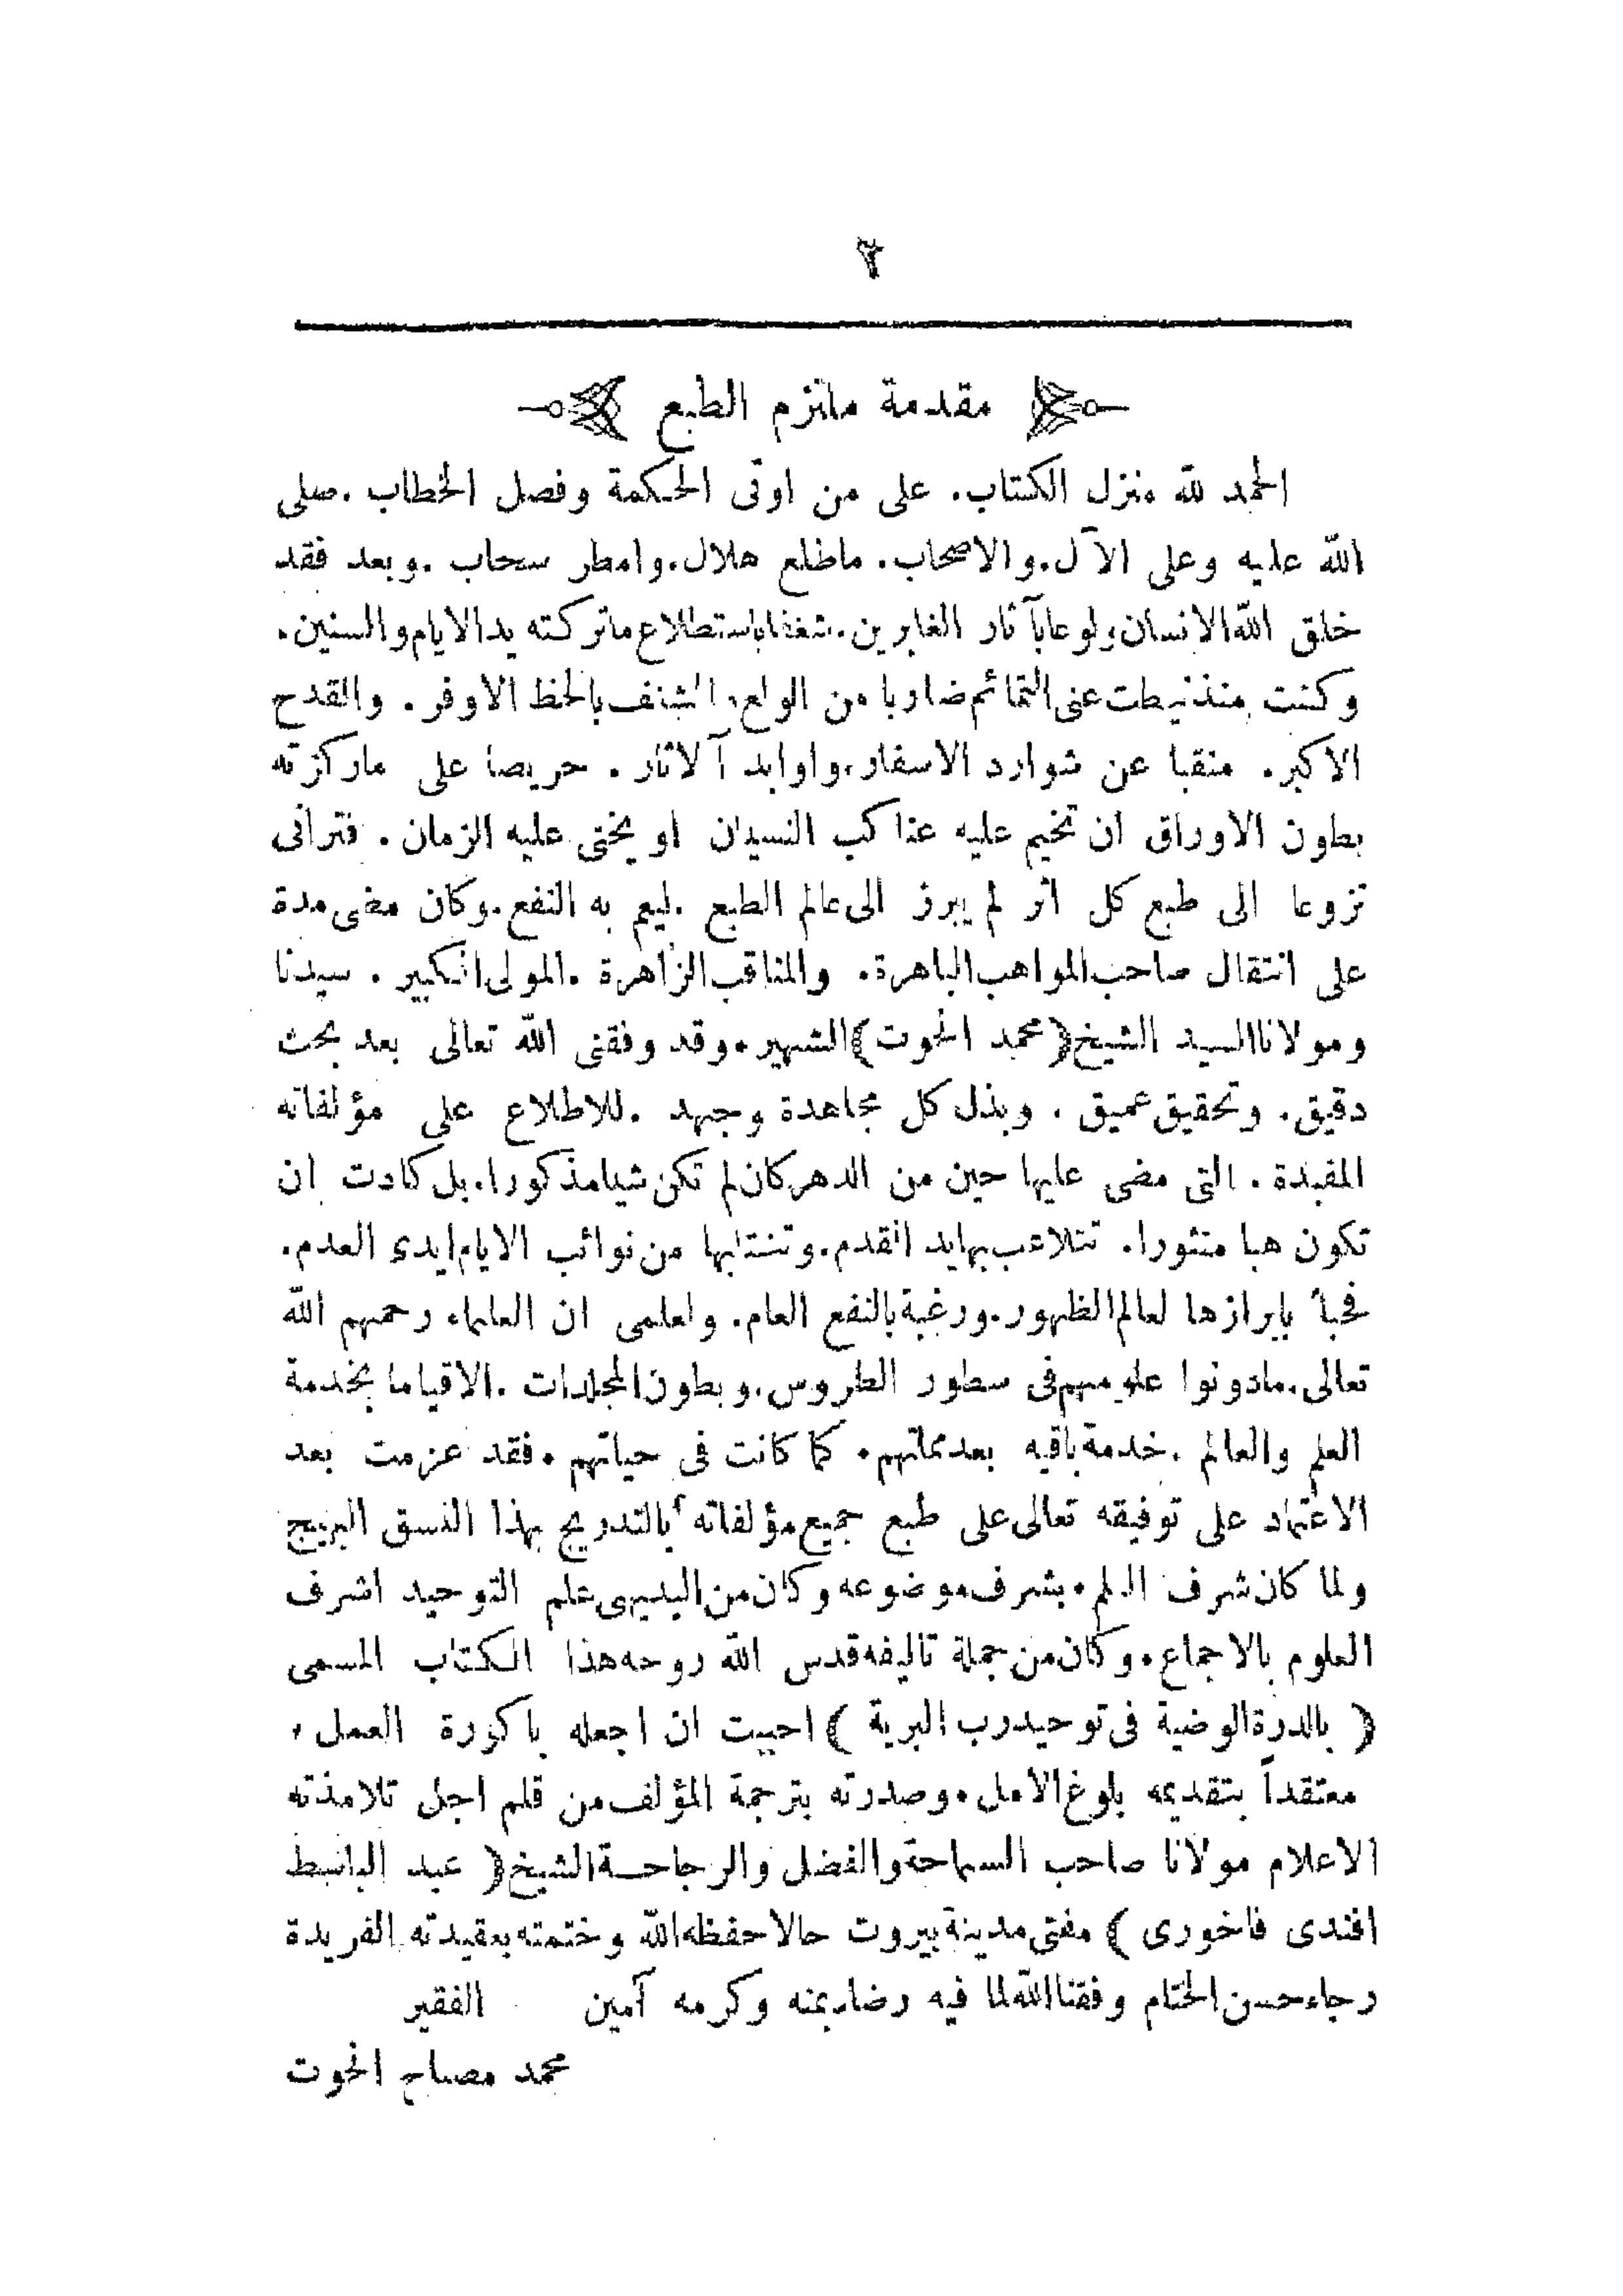 ٢
مقدمة ملتزم الطبع
الحمد لله منزل الكتاب. على من اوتى الحكمة وفصل الخطاب .صلى
الله عليه وعلى الآل.والاصحاب. ماطلع هلال.وامطر سحاب .وبعد فقد
خلق الله الانسان ولوعا بآثار الغابرين.شغفا باستطلاع ماتركته يد الايام والسنين.
وكنت منذ نيطت عنى التمائم ضاربا من الولع. الشغف بالحظ الاوفر. والقدح
الاكبر. منقبا عن شوارد الاسفار.واوابد آلاثار. حريصا على ماركزته
بطون الاوراق ان تخيم عليه عناكب النسيان او يخنى عليه الزمان. فترانى
نزوعا الى طبع كل اثر لم يبرز الى عالم الطبع .ليعم به النفع.وكان مضى مدة
على انتقال صاحب المواهب الباهرة. والمناقب الزاهرة .المولى الكبير. سيدنا
ومولانا السيد الشيخ (محمد الحوت) الشهير.وقد وفقنى الله تعالى بعد بحث
دقيق. وتحقيق عميق. وبذل كل مجاهدة وجهد .للاطلاع على مؤلفاته
المفيدة. التى مضى عليها حين من الدهر كان لم تكن شيا مذكورا.بل كادت ان
تكون هبا منثورا. تتلاعب بها يد القدم.وتنتابها من نوائب الايام ايدى العدم.
فحباً بابرازها لعالم الظهور.ورغبة بالنفع العام. ولعلمى ان العلماء رحمهم الله
تعالى.مادونوا علومهم فى سطور الطروس.وبطون المجلدات .الاقياما بخدمة
العلم والعالم .خدمة باقيه بعد مماتهم. كما كانت فى حياتهم.فقد عزمت بعد
الاعتماد على توفيقه تعالى على طبع جميع مؤلفاته بالتدريج بهذا النسق البهيج
ولما كان شرف العلم.بشرف موضوعه وكان من البديهى علم التوحيد اشرف
العلوم بالاجماع.وكان من جملة تاليفه قدس الله روحه هذا الكتاب المسمى
( بالدرة الوضية فى توحيد رب البرية ) احببت ان اجعله باكورة العمل.
معتقداً بتقديمه بلوغ الامل.وصدرته بترجمة المؤلف من قلم اجل تلامذته
الاعلام مولانا صاحب السماحة والفضل والرجاحة الشيخ ( عبد الباسط
افندى فاخورى ) مفتى مدينة بيروت حالا حفظه الله وختمته بعقيدته الفريدة
رجاء حسن الختام وفقنا الله لما فيه رضاه بمنه وكرمه آمين الفقير
محمد مصباح الحوت